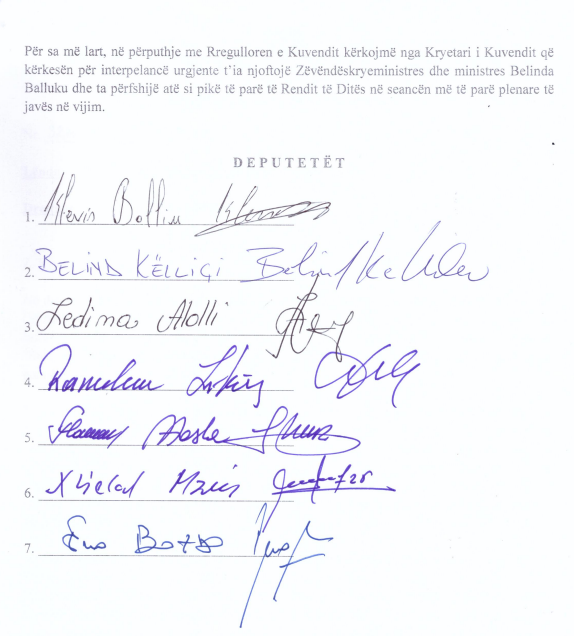 Për sa më lart, në përputhje me Rregulloren e Kuvendit kërkojmë nga Kryetari i Kuvendit që
kërkesën për interpelancë urgjente t'ia njoftojë Zëvëndëskryeministres dhe ministres Belinda
Balluku dhe ta përfshijë atë si pikë të parë të Rendit të Ditës në seancën më të parë plenare të
javës në vijim.
DEPUTETËT
1. Klevis Balliu
2. BELIND KËLLIÇI
3. Ledina Alolli
4.
5.
6.
7. Eno Bozdo